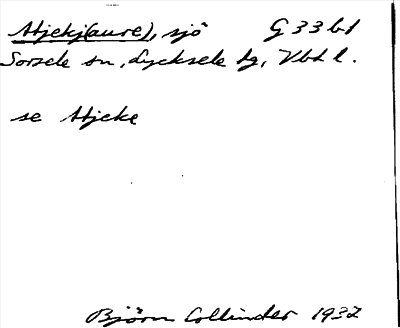 Atjekj(aure), sjö G 33 b 1
Sorsele sn, Lycksele tg, Vbt l.
se Atjeke
Björn Collinder 1932